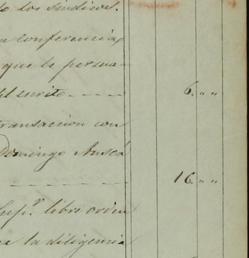 to los sindicos.
conferencia,
que le persua-
el escrito 6 " "
transacción con
Domingo
16 " "
Sup.r libro orden
a la diligencia